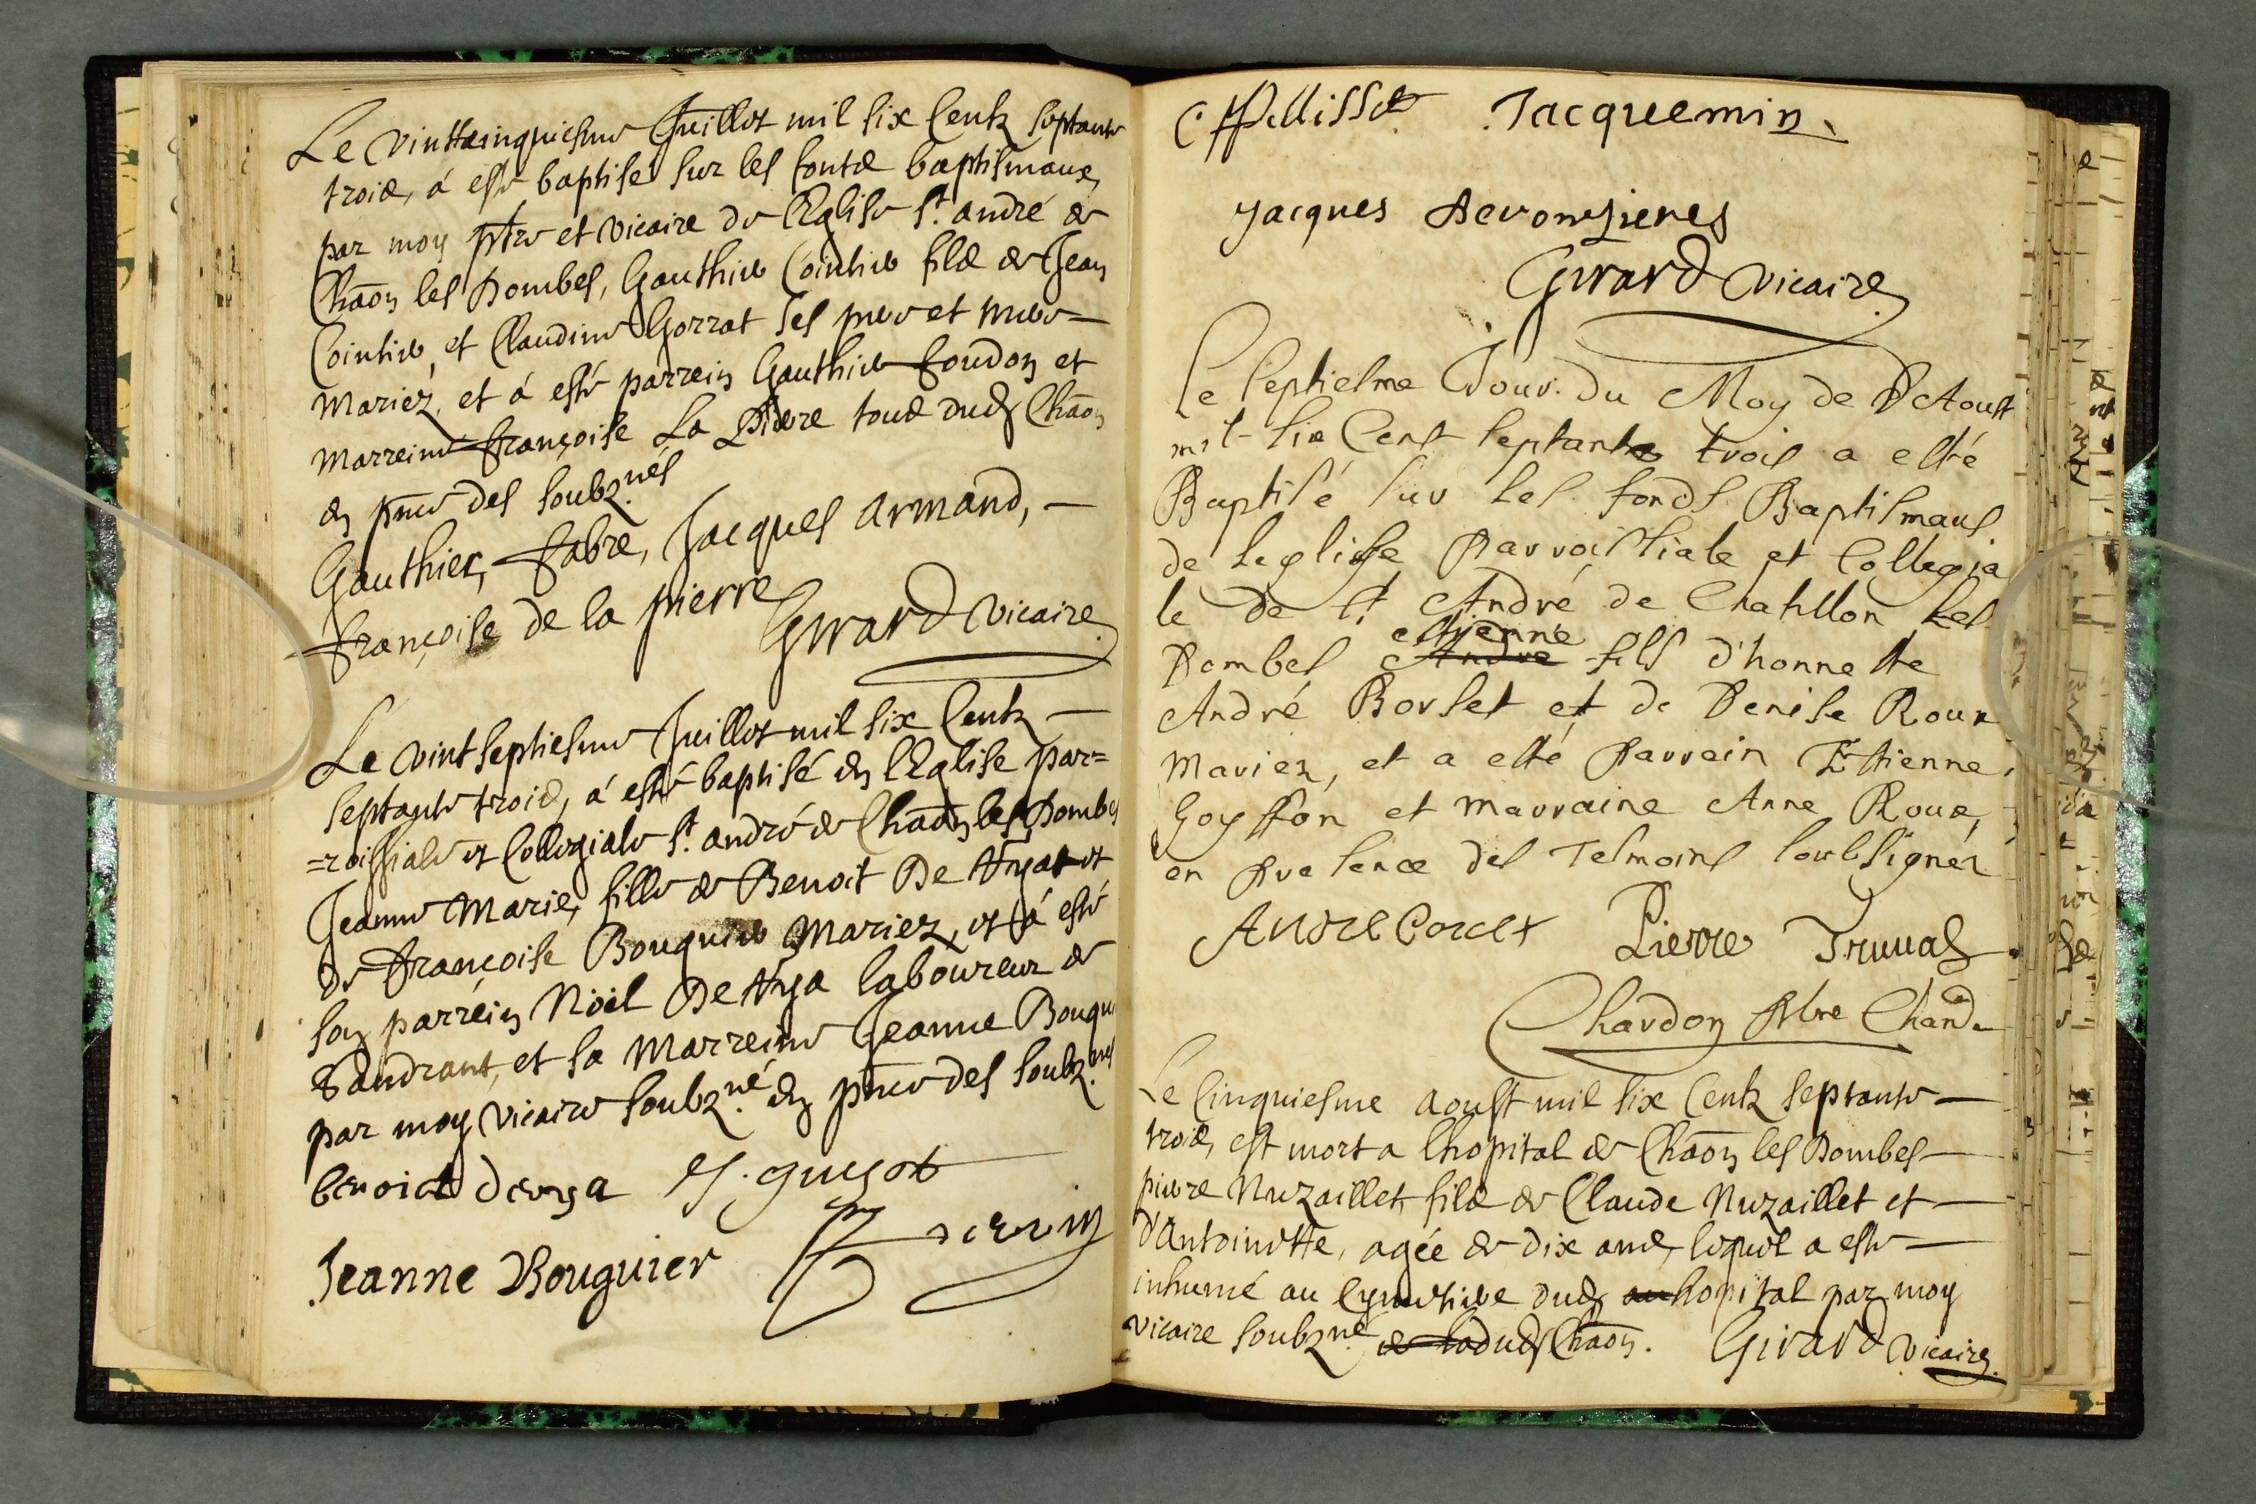 Le vinttcinquiesme Juillet mil six Centz septante
trois, á esté baptisé sur les fontz baptismaux,
par moy ptre et vicaire de l'Eglise St. andré de
Chãon les Dombes, Gauthier Cointier filz de Jean
Cointier, et Claudine Gorrat ses pere et mere
Mariez, et á esté parrein Gauthier et
Marreine françoise La Pierre tous dud Chãon
en pnce des soubznés
Gauthier, fabre, Jacques Armand,
françoise de la pierre Girard vicaire
Le vintseptiesme Juillet mil six Centz
septante troiz, á esté baptisé en l'Eglise par=
=roissiale et Collegiale St. andré de Chãon les Dombes
Jeanne Marie, fille de Benoit De et
de françoise Bouquier Mariez, et á esté
son parrein Nöel De laboureur de
Sandrant, et sa Marreine Jeanne
par moy vicaire soubzné. en pnce des soubznes
benoict J. guyot
Jeanne Bouguier
Jacquemin
Jacques
Girard vicaire
Le septiesme Jour du Moy de D'Aoust
mil six Cent septante trois a esté
Baptisé sur les fonds Baptismaus
de leglise Parroissiale et Collegia
le de st André de Chatillon les
Estienne
Dombes André fils d'honneste
André Borset et de Denise Roux
Mariez, et a esté Parrain Estienne
Goyffon et marraine Anne Roux,
en presence des Tesmoins soubsignez
Andre Corcet Pierre
Chardon Pbre Chan.
Le Cinquiesme aoust mil six Centz septante
troiz, est mort a lhopital de Chãon les Dombes
pierre Nuzaillet, filz de Claude Nuzaillet et
d'Antoinette, agée de dix ans, lequel a esté
inhumé au Cymetiere dud au hopital par moy
vicaire soubzné dud Chãon. Girard vicaire.